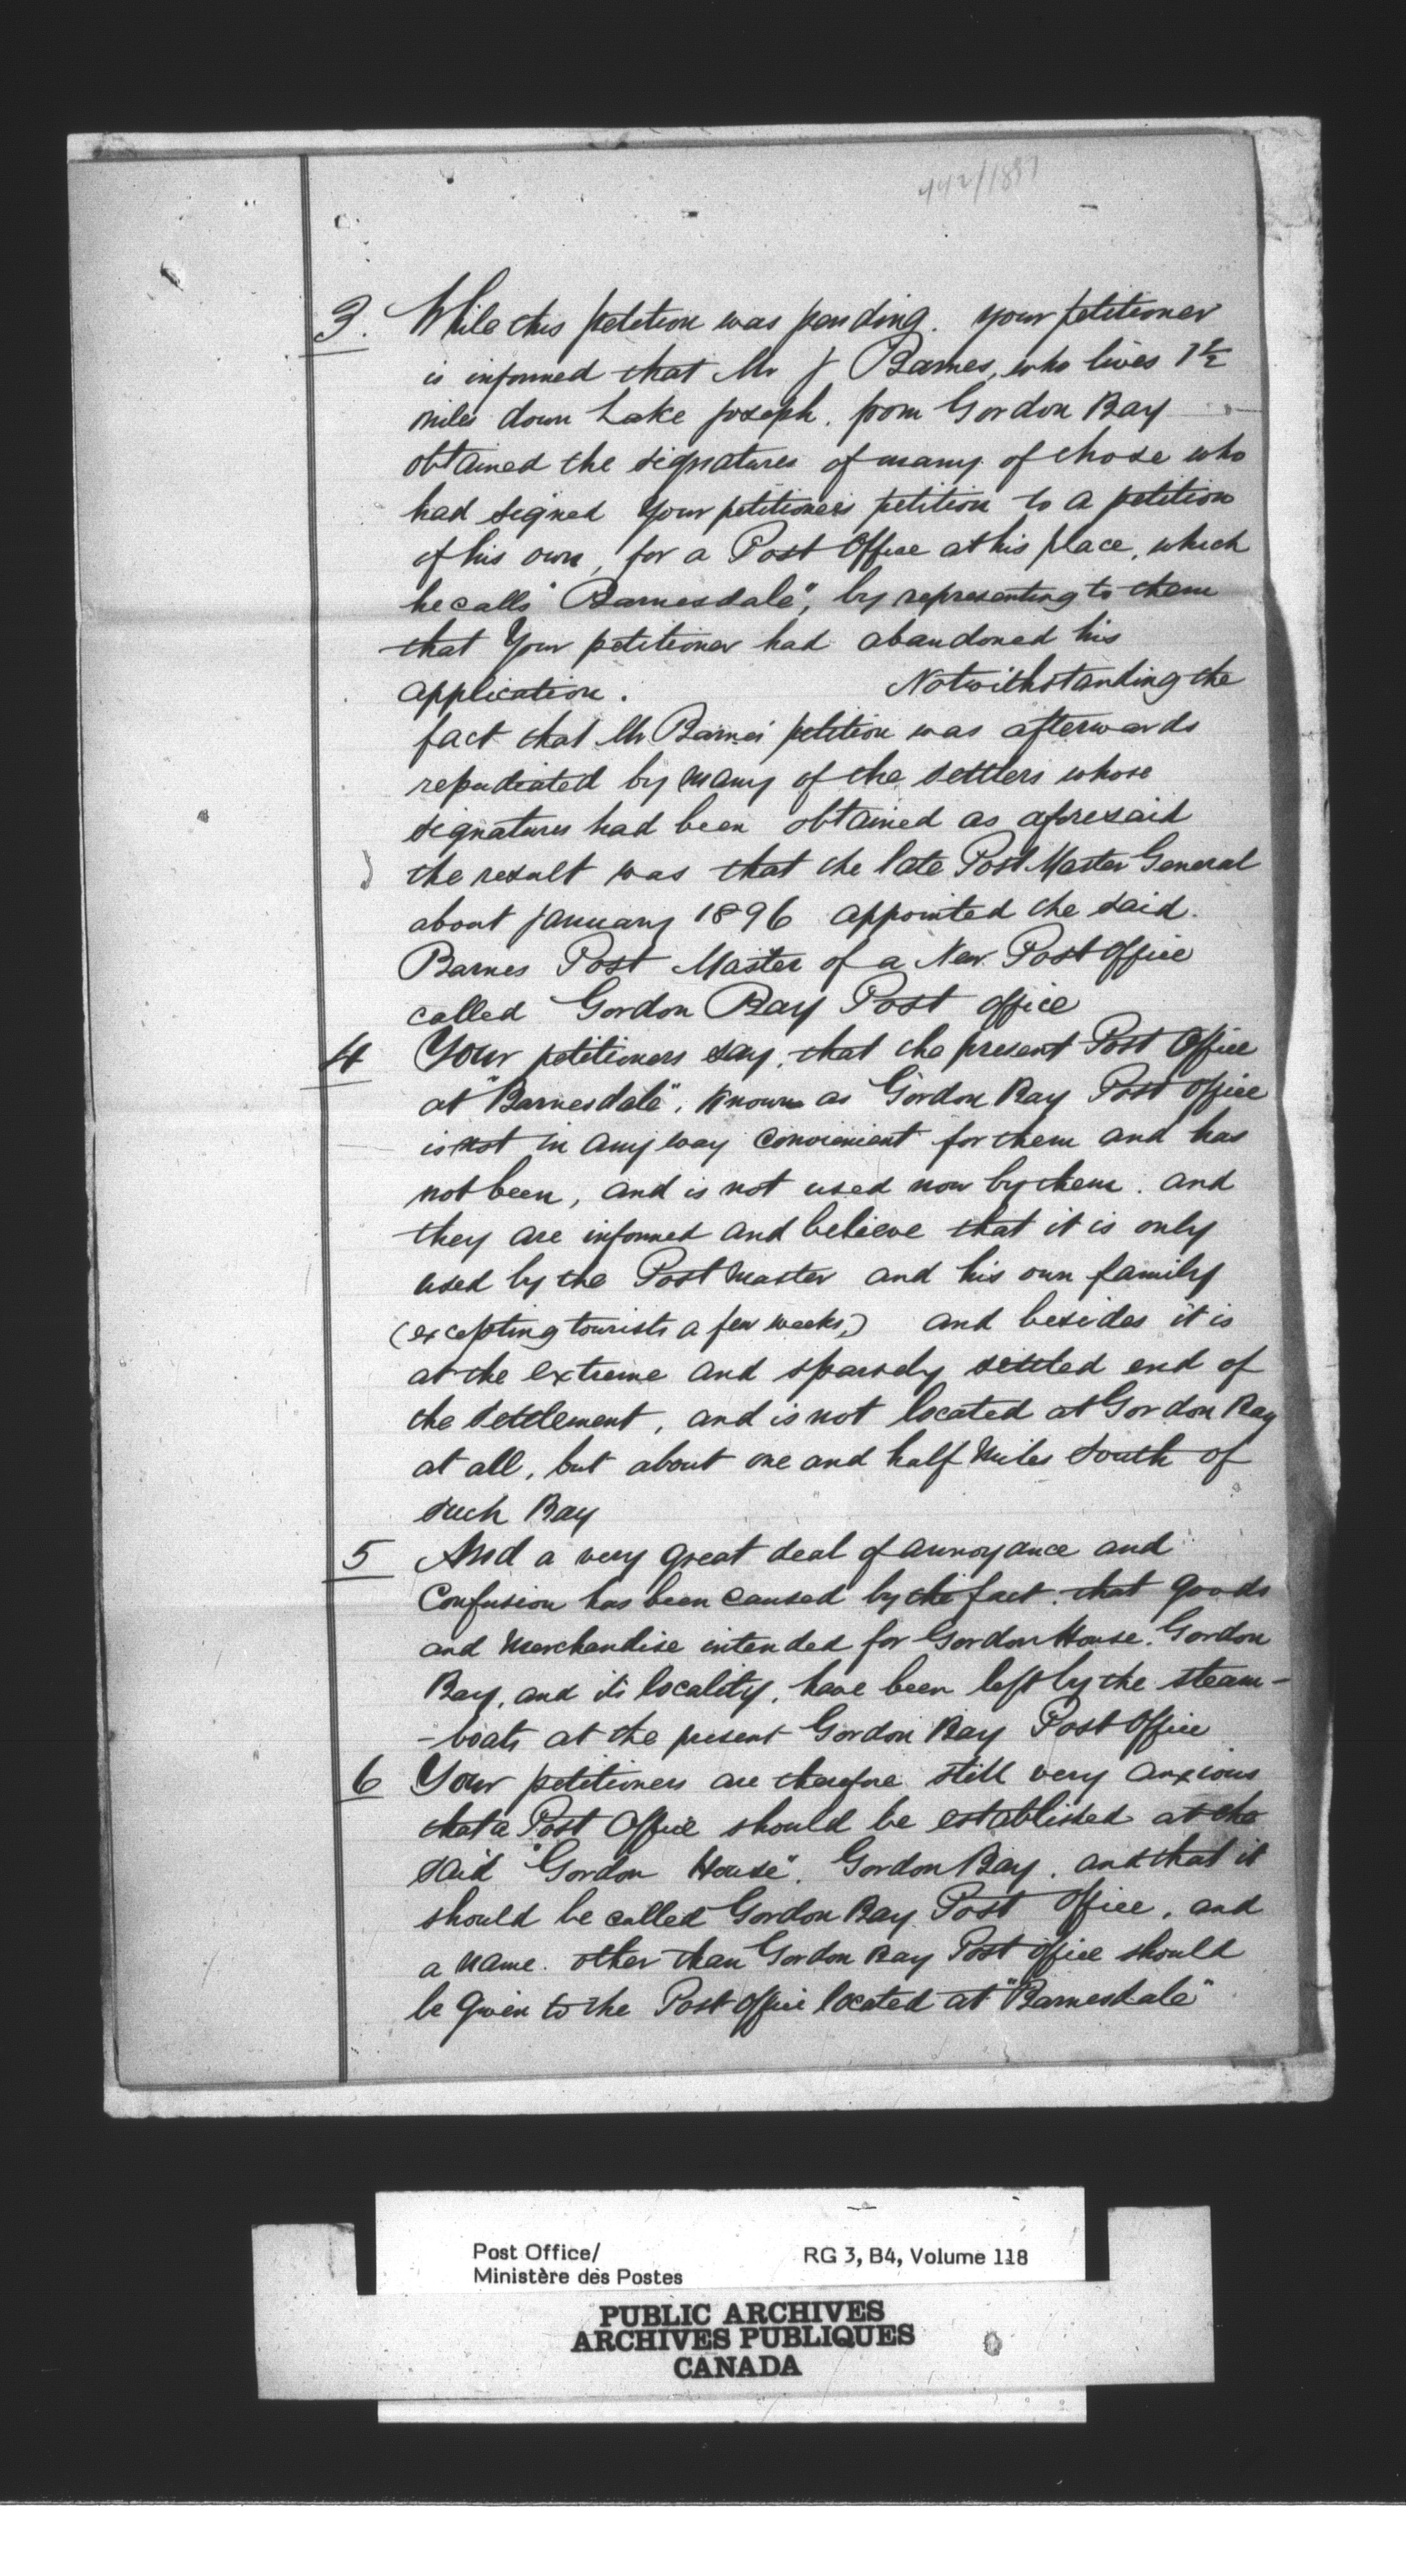 442/1897
3. While this petition was pending. your petitioner
is informed that Mr J Barnes, who lives 1½
miles down Lake Joseph. from Gordon Bay
obtained the signatures of many of those who
had signed Your petitioners petition to a petition
of his own, for a Post Office at his place, which
he calls "Barnesdale", by representing to them
that Your petitioner had abandoned his
application. Notwithstanding the
fact that Mr Barnes' petition was afterwards
repudiated by many of the settlers whose
signatures had been obtained as aforesaid
the result was that the late Post Master General
about January 1896 appointed the said.
Barnes Post Master of a New Post Office
called Gordon Bay Post office
4 Your petitioners say, that the present Post Office
at "Barnesdale", known as Gordon Bay Post Office
is not in any way convenient for them and has
not been, and is not used now by them. and
they are informed and believe that it is only
used by the Post Master and his own family
(excepting tourists a few weeks,) and besides it is
at the extreme and sparsely settled end of
the settlement, and is not located at Gordon Bay
at all, but about one and half miles South of
such Bay
5 And a very great deal of annoyance and
Confusion has been caused by the fact. that goods
and Merchandise intended for Gordon House. Gordon
Bay, and its locality, have been left by the steam-
-boats at the present Gordon Bay Post Office
6 Your petitioners are therefore still very anxious
that a Post Office should be established at the
said "Gordon House". Gordon Bay. and that it
should be called Gordon Bay Post Office, and
a name. other than Gordon Bay Post office should
be given to the Post office located at "Barnesdale"
Post Office/
Ministère des Postes
RG 3, B4, Volume 118
PUBLIC ARCHIVES
ARCHIVES PUBLIQUES
CANADA